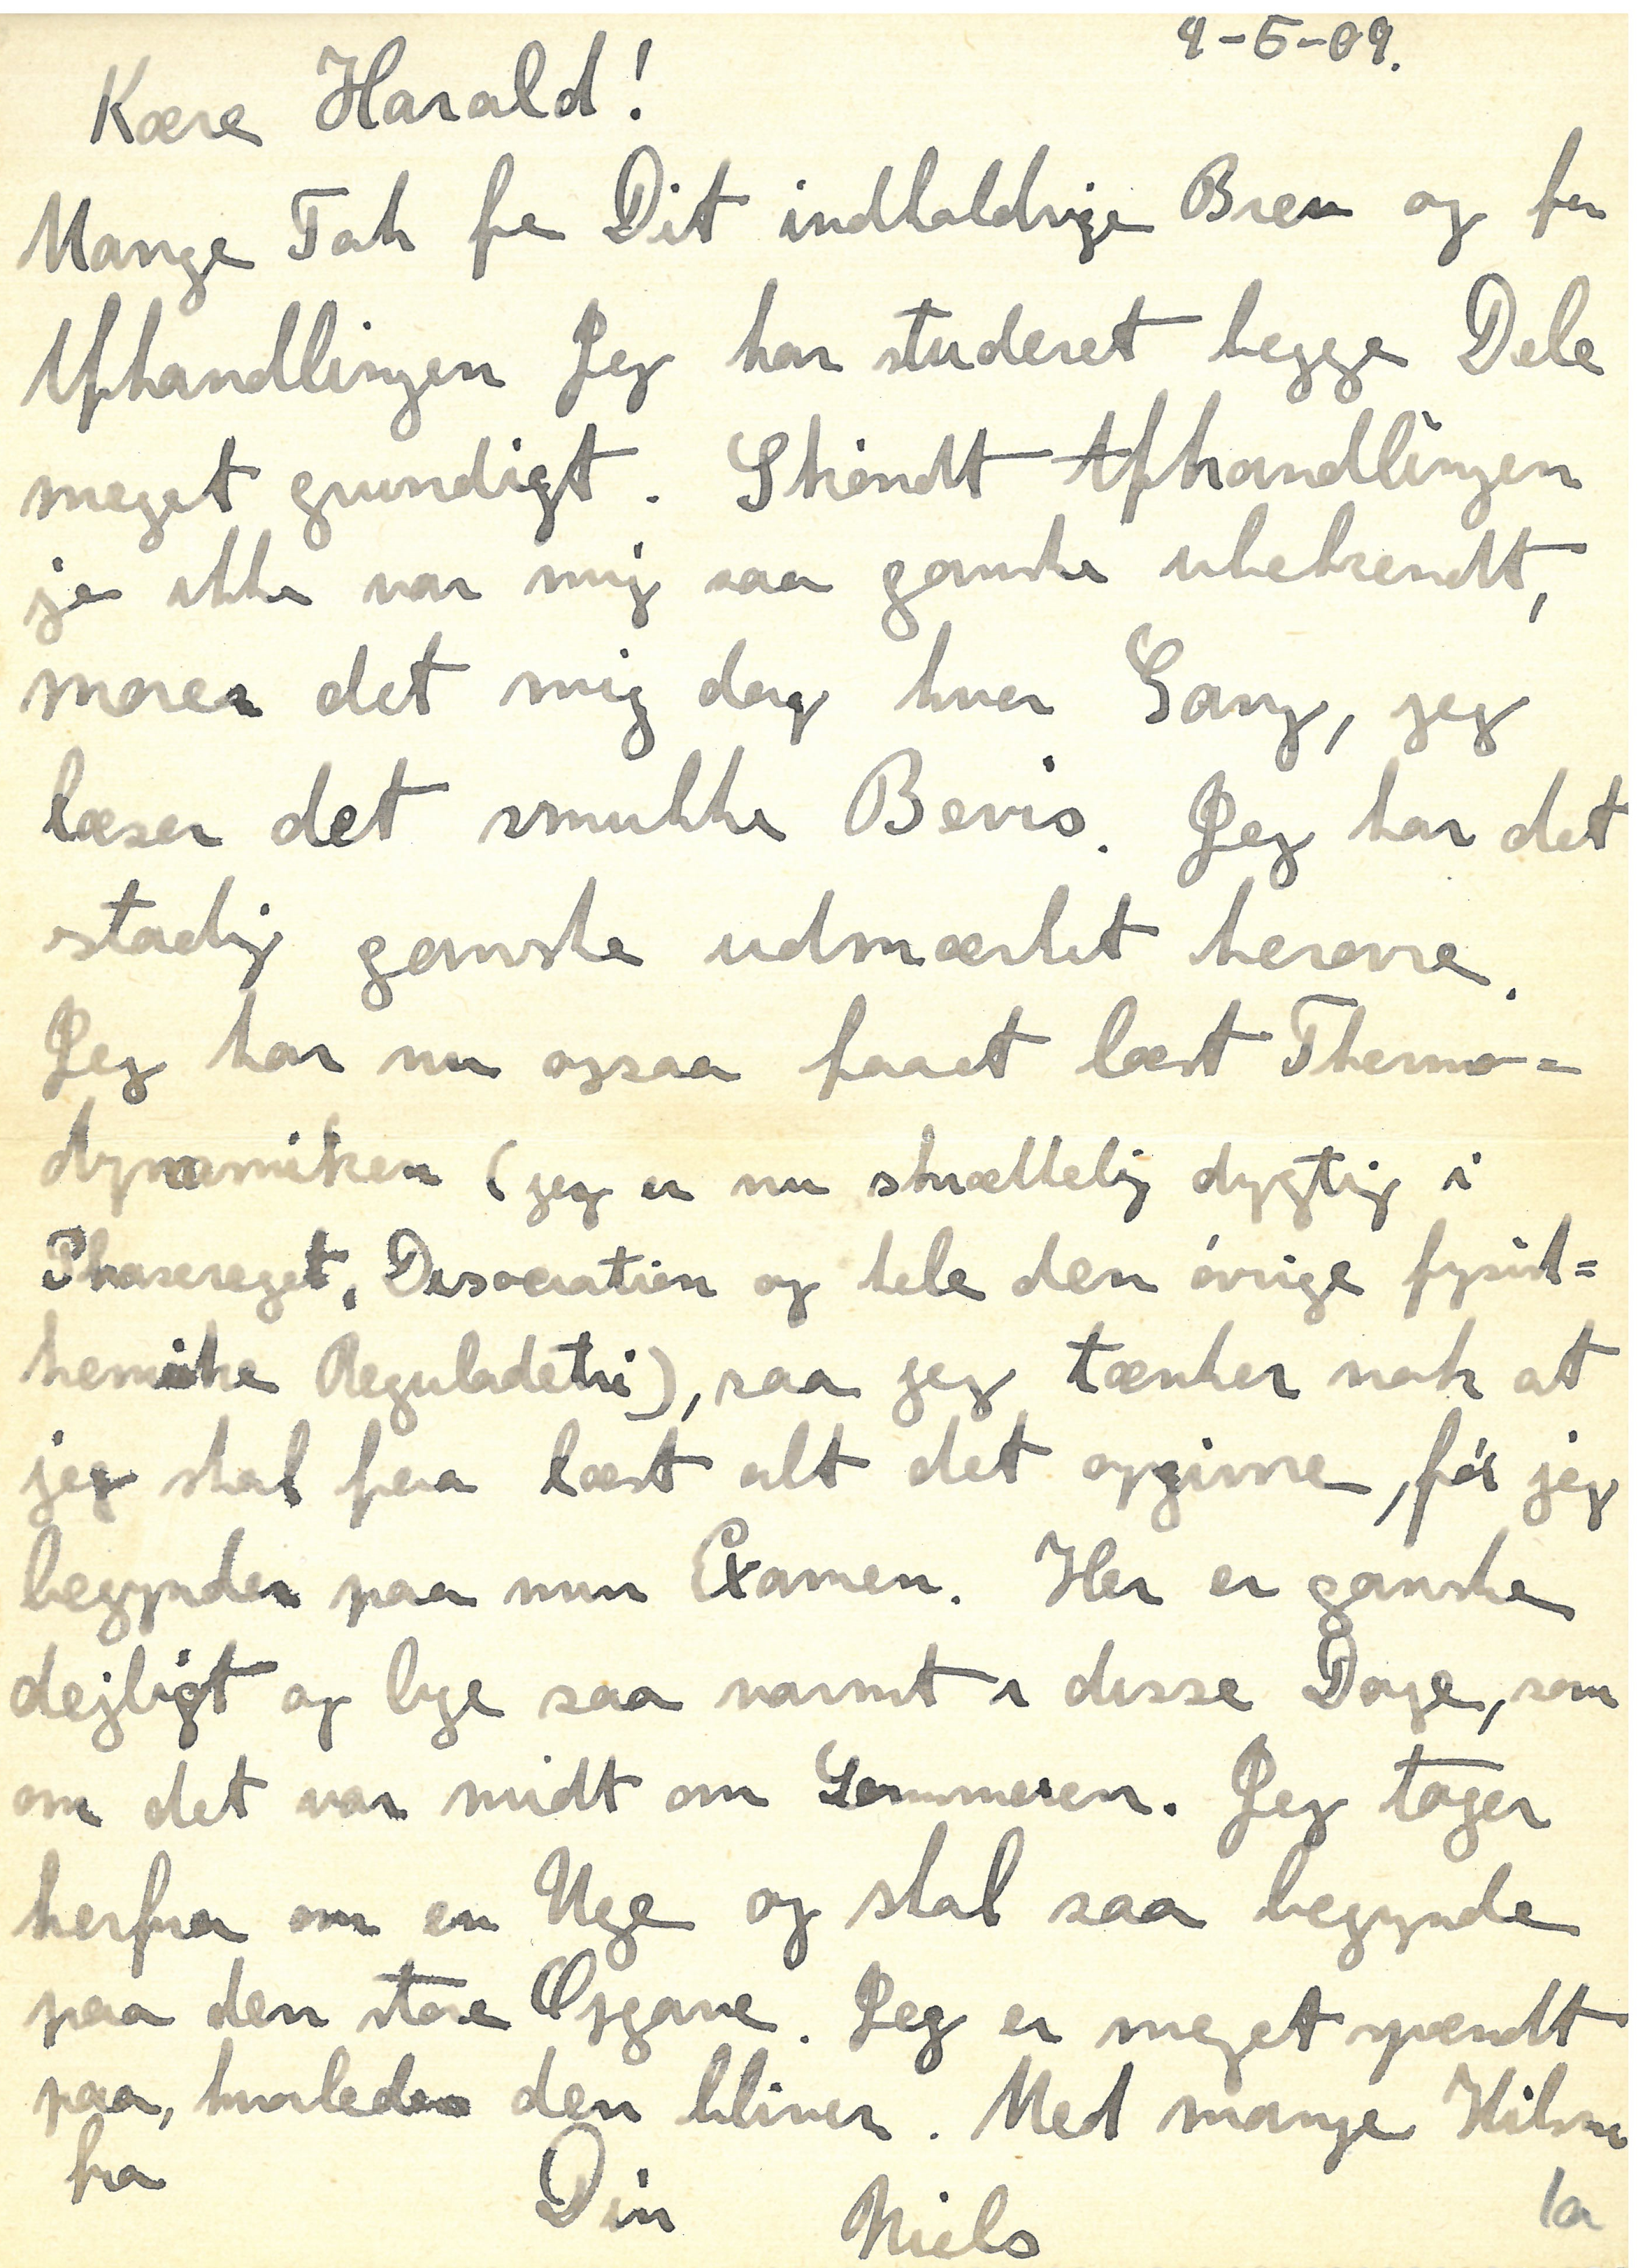 9-5-09.
Kære Harald!
Mange Tak for Dit indholdrige Brev og for
Afhandlingen Jeg har studeret begge Dele
meget grundigt. Skøndt Afhandlingen
jo ikke var mig saa ganske ubekendt,
morer det mig dog hver Gang, jeg
læser det smukke Bevis. Jeg har det
stadig ganske udmærket herovre.
Jeg har nu ogsaa faaet læst Thermo=
dynamiken (jeg er nu skrækkelig dygtig i
Phasereglet, Disociation og hele den øvrige fysisk=
kemiske Reguladetri), saa jeg tænker nok at
jeg skal faa læst alt det opgivne, før jeg
begynder paa min Examen. Her er ganske
dejligt og lige saa varmt i disse Dage, som
om det var midt om Sommeren. Jeg tager
herfra om en Uge og skal saa begynde
paa den store Opgave. Jeg er meget spændt
paa, hvorledes den bliver. Med mange Hilsner
fra Din Niels